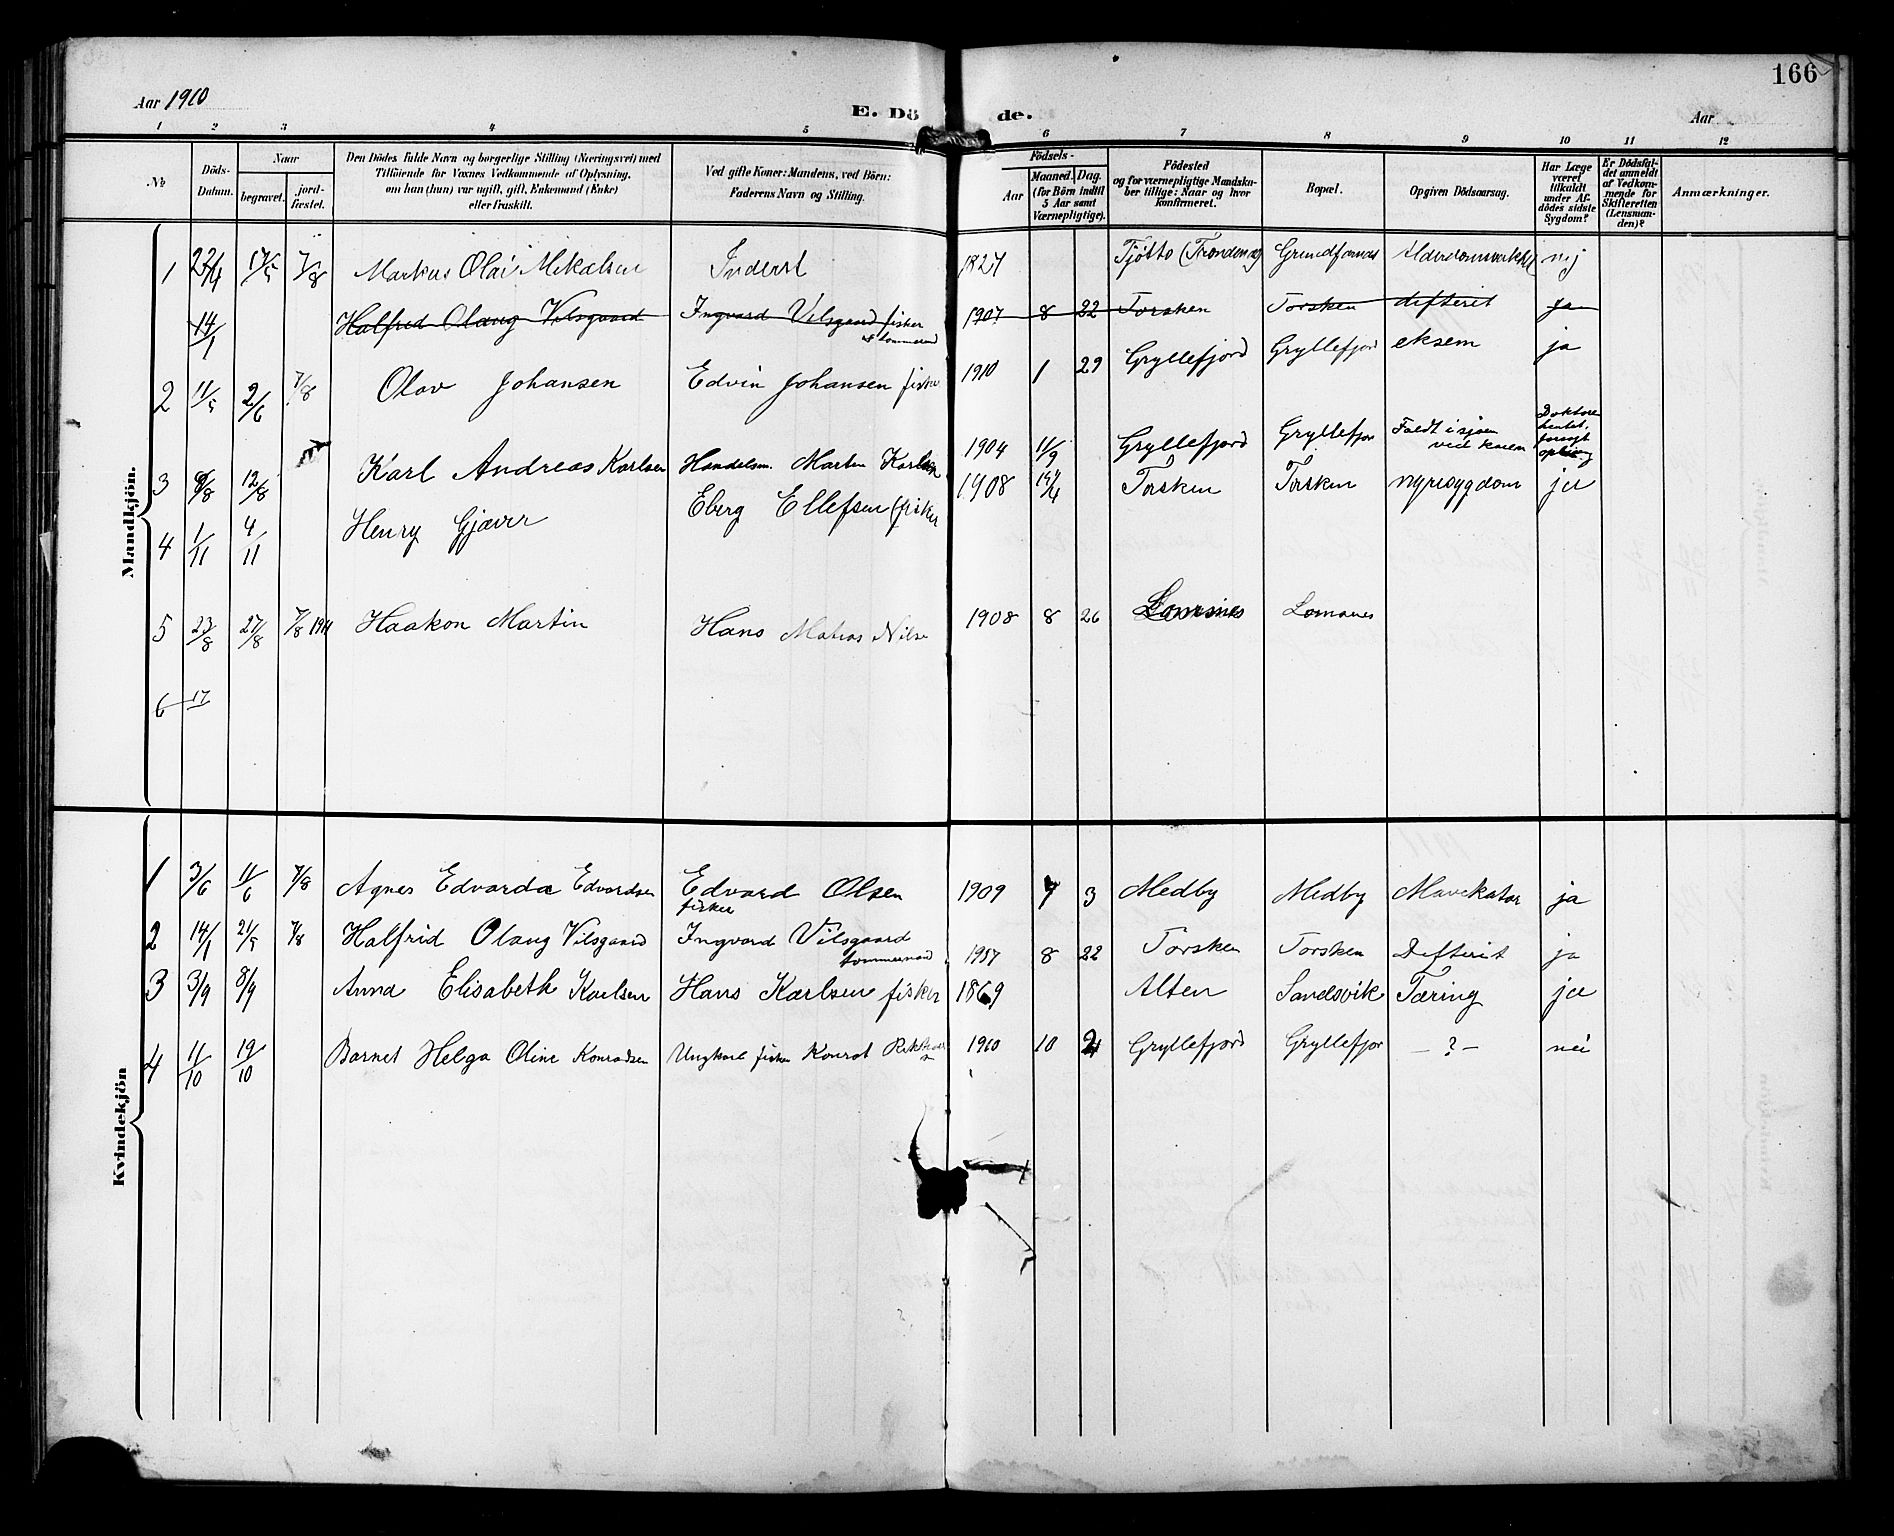 166
Aar 1910
E. Dö de.
Aar
1 2 3 4 5 6 7 8 9 10 11 12
№ Döds-Datum. Naar begravet. jord-fæstet. Den Dödes fulde Navn og borgerlige Stilling (Næringsvei) med Tilföiende for Voxnes Vedkommende af Oplysning, om han (hun) var ugift, gift, Enkemand (Enke) eller fraskilt. Ved gifte Koner: Mandens, ved Börn: Faderens Navn og Stilling. Födsels- Aar Maaned. Dag. (for Börn indtil 5 Aar samt Værnepligtige). Födested og for værnepligtige Mandskaber tillige: Naar og hvor konfirmeret. Bopæl. Opgiven Dödsaarsag. Har Læge været tilkaldt under Afdödes sidste Sygdom? Er Dödsfaldet anmeldt af Vedkommende for Skifteretten (Lensmanden)? Anmærkninger.
Mandkjön.
1 23/4 17/5 7/8 Markus Olai Mikalsen Inderst 1827 Tjøtto (Trondenes) Grundfarnes Alderdomssvækkel nej
14/1 Halfrid Olaug Vilsgaard Ingvard Vilsgaard fisker & tømmermand 1907 8 22 Torsken Torsken difterit ja
2 11/5 2/6 7/8 Olav Johansen Edvin Johansen fisker 1910 1 29 Gryllefjord Gryllefjord eksem ja
3 8/8 12/8 Karl Andreas Karlsen Handelsm. Martin Karlsen 1904 11/9 Gryllefjord Gryllefjor Faldt i sjøen ved kaien Doktore hentet, forsøgt
4 1/11 4/11 Henry Gjæver Eberg Ellefsen (fisker 1908 14/4 Torsken Torsken nyresygdom ja
5 23/8 27/8 7/8 1911 Haakon Martin Hans Matias Nilse 1908 8 26 Lomsnes Lomsnes
6 17
Kvindekjön
1 3/6 11/6 7/8 Agnes Edvarda Edvardsen Edvard Olsen fisker 1909 7 3 Medby Medby Mavekatar ja
2 14/1 21/5 7/8 Halfrid Olaug Vilsgaard Ingvard Vilsgaard tømmermand 1907 8 22 Torsken Torsken Difterit ja
3 3/9 8/9 Anna Elisabeth Karlsen Hans Karlsen fisker 1869 Alten Sandsvik Tæring ja
4 11/10 19/10 Barnet Helga Oline Konradsen Ungkarl fisker Konrat 1910 10 2 Gryllefjord Gryllefjor – ? – nei